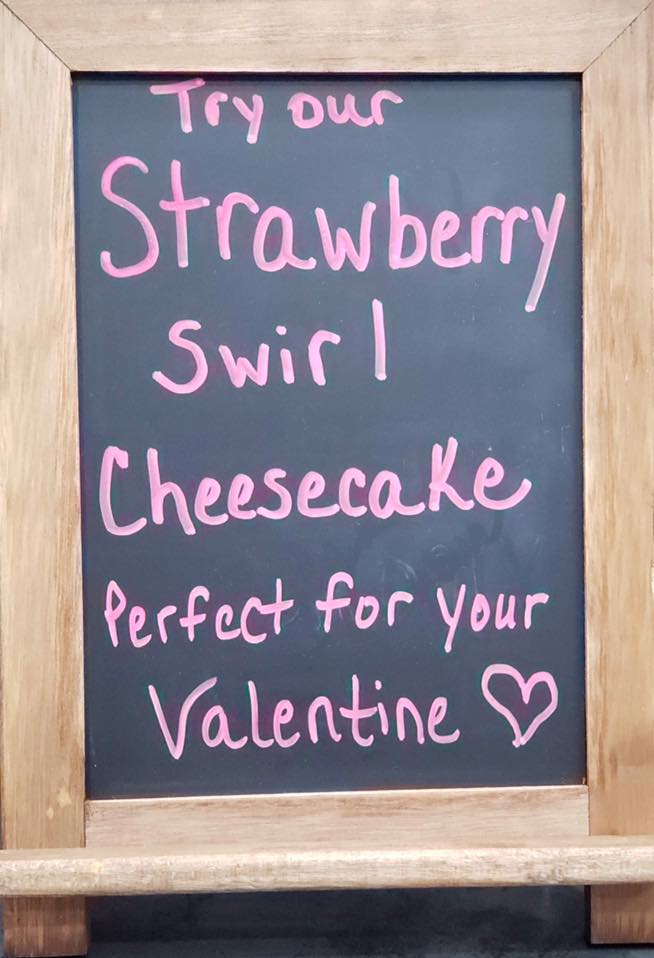 Try our
Strawberry
Swirl
Cheesecake
Perfect for your
Valentine ♡